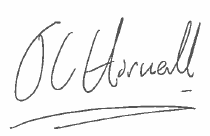 J C Horwell